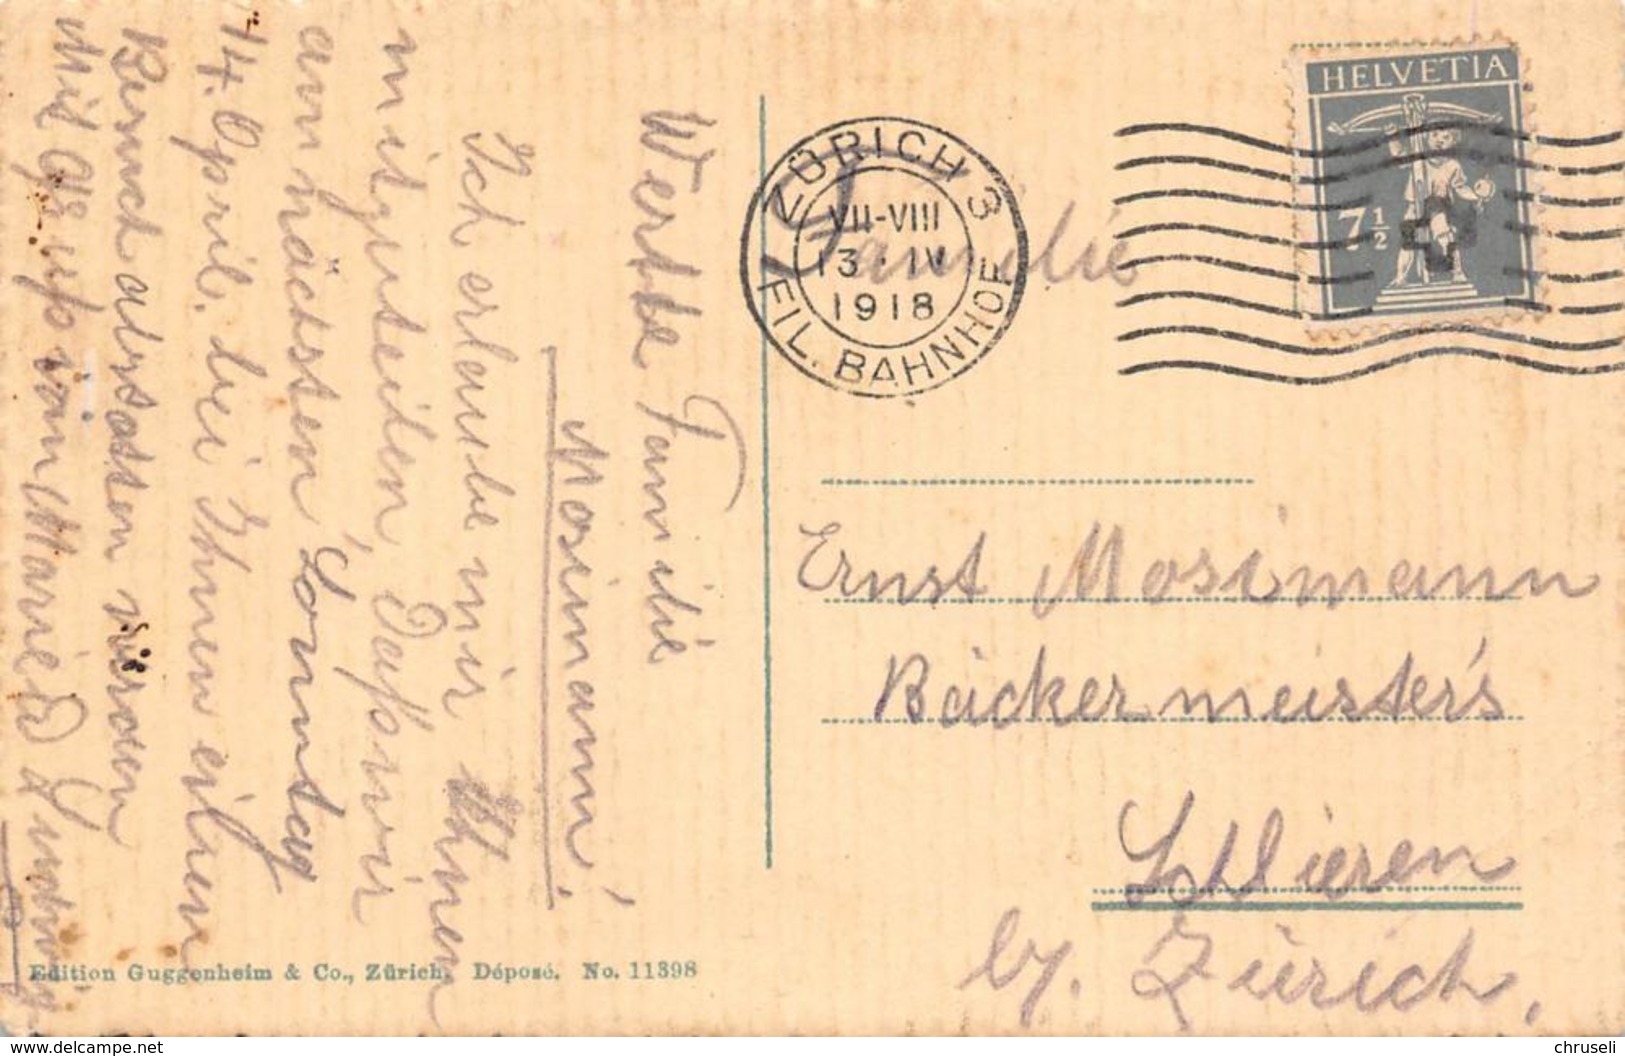 Werte Familie
Mosimann!
Ich erlaube mir Ihnen
mitzuteilen, dass wir
am nächsten Sonntag
14. April. bei Ihnen einen
Besuch abstatten werden
Mit Gruss von Marie
ZÜRICH 3
VII-VIII
13·IV
1918
FIL. BAHNHOF
HELVETIA
7½
Familie
Ernst Mosimann
Bäckermeister's
Schlieren
by. Zürich.
Edition Guggenheim & Co., Zürich. Déposé. No. 11398
www.delcampe.net
chruseli